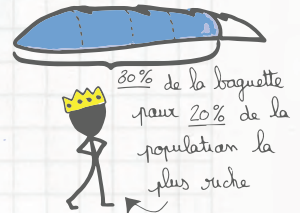 80% de la baguette
pour 20% de la
population la
plus riche